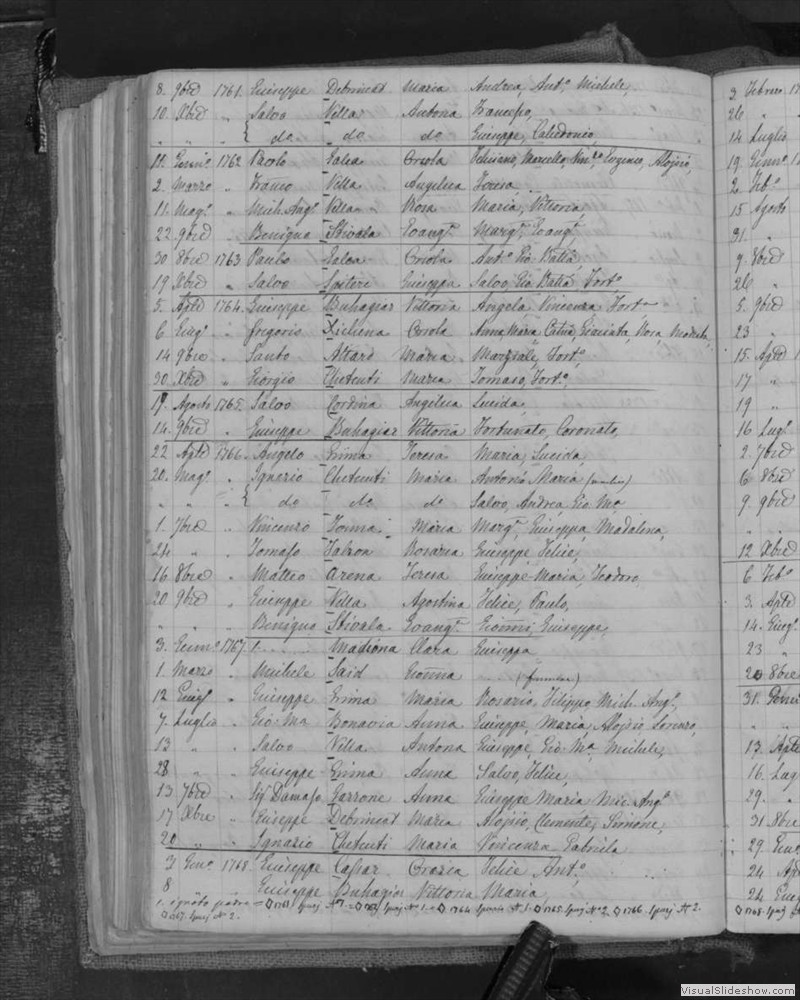 8. 9bre 1761. Giuseppe Debrincat Maria Andrea, Ant.o Michele,
10. Xbre „ Salvo Villa Antonia Francesco,
„ „ „ { do do do Giuseppe, Calcedonio,
11. Genn.o 1762 Paolo Galea Orsola Feliciano, Marcello, Vin.zo, Eugenio, Alojsio,
2. Marzo „ Franco Villa Angelica Teresa
11. Mag.o „ Mich. Ang.o Villa Rosa Maria, Vittoria,
22. 9bre „ Benigno Stivala Evang.ta Marg.ta, Evang.ta
30 8bre 1763 Paulo Galea Orsola Ant.o Gio Batta,
19. Xbre „ Salvo Spiteri Giuseppa Salvo, Gio Batta, Fort.o
5. Aple 1764. Giuseppe Buhagiar Vittoria Angela, Vincenza, Fort.a
6 Giug.o „ Gregorio Xichena Orsola Anna, Maria, Giacinta, Rosa,
14 9bre „ Santo Attard Maria Marziale, Fort.o,
30. Xbre „ Giorgio Chetcuti Maria Tomaso, Fort.o,
17. Agosto 1765. Salvo Cordina Angelica Lucida,
14. 9bre „ Giuseppe Buhagiar Vittoria Fortunato, Coronato,
22. Aple 1766. Angelo Grima Teresa Maria, Lucida,
20. Mag.o „ Ignazio Chetcuti Maria Antonio Maria
„ „ „ { do do do Salvo, Andrea, Gio Ma,
1. 7bre „ Vincenzo Tonna Maria Marg.ta, Giuseppa, Madalena,
24 „ „ Tomaso Falzon Rosaria Giuseppe, Felice,
16 8bre „ Matteo Arena Teresa Giuseppe Maria, Teodoro,
20 9bre „ Giuseppe Villa Agostina Felice, Paulo,
„ „ „ Benigno Stivala Evang.ta Gionni, Giuseppe,
3. Genn.o 1767. 1. Madiona Clara Giuseppa
1. Marzo „ Michele Said Gionna
12 Giug.o „ Giuseppe Grima Maria Rosario, Filippo, Mich. Ang.o,
7. Luglio „ Gio Ma Bonavia Anna Giuseppe, Maria, Alojsio, Lorenzo,
13 „ „ Salvo Villa Antonia Giuseppe, Gio Ma, Michele,
28 „ „ Giuseppe Grima Anna Salvo, Felice,
13 7bre „ Sig Damaso Garrone Anna Giuseppe Maria, Nic. Ang.o
17 Xbre „ Giuseppe Debrincat Maria Aloisio, Clemente, Simone,
20 „ „ Ignazio Chetcuti Maria Vincenza Gabriela
3 Gen.o 1768. Giuseppe Caspar Grazia Felice Ant.o
8 „ „ Giuseppe Buhagiar Vittoria Maria
1. ignoto padre
3 Febrero
26 „
14 Luglio
19. Genn.o
2. Feb.o
15 Agosto
31. „
9. 8bre
26 „
5. 9bre
23 „
15. Aple
17 „
19 „
16 Lug.o
2. 7bre
6 8bre
9. 9bre
12 Xbre
6 Feb.o
3. Aple
14. Giug.o
23 „
20 8bre
31.
13. Aple
16. Lug
29. „
31 8bre
29. Giug
24. Ap
24 Giug
VisualSlideshow.com